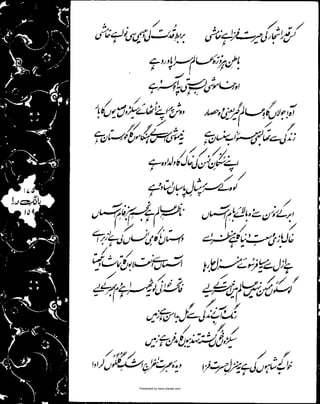 کس قدر اشجار کی حیرت فزا ہے خامشی
بربطِ قدرت کی دھیمی سی نوا ہے خامشی
باطنِ ہر ذرۂ عالم سراپا درد ہے
اور خاموشی لبِ ہستی پہ آہِ سرد ہے
آہ! جولاں گاہِ عالم گیر یعنی وہ حصار
دوش پر اپنے اٹھائے سیکڑوں صدیوں کا بار
زندگی سے تھا کبھی معمور، اب سنسان ہے
یہ خموشی اس کے ہنگاموں کا گورستان ہے
اپنے سکانِ کہن کی خاک کا دلدادہ ہے
کوہ کے سر پر مثالِ پاسباں استادہ ہے
ابر کے روزن سے وہ بالائے بامِ آسماں
ناظرِ عالم ہے نجمِ سبز فامِ آسماں
خاک بازی وسعتِ دنیا کا ہے منظر اسے
داستاں ناکامیِ انساں کی ہے ازبر اسے
ہے ازل سے یہ مسافر سوئے منزل جا رہا
آسماں سے انقلابوں کا تماشا دیکھتا
گو سکوں ممکن نہیں عالم میں اختر کے لیے
فاتحہ خوانی کو یہ ٹھہرا ہے دم بھر کے لیے
رنگ و آبِ زندگی سے گل بدامن ہے زمیں
سیکڑوں خوں گشتہ تہذیبوں کا مدفن ہے زمیں
خواب گہ شاہوں کی ہے یہ منزلِ حسرت فزا
دیدۂ عبرت! خراجِ اشکِ گلگوں کر ادا
بانگ درا